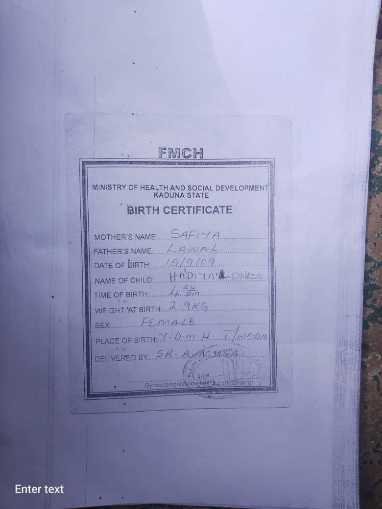 FMCH
MINISTRY OF HEALTH AND SOCIAL DEVELOPMENT
KADUNA STATE
BIRTH CERTIFICATE
MOTHER'S NAME: SAFIYA
FATHER'S NAME: LAWAL
DATE OF BIRTH: 15/9/09
NAME OF CHILD: HADIYA
TIME OF BIRTH:
WEIGHT AT BIRTH: 2.9KG
SEX: FEMALE
PLACE OF BIRTH: Y.D.M.H
DELIVERED BY: SR.
Enter text